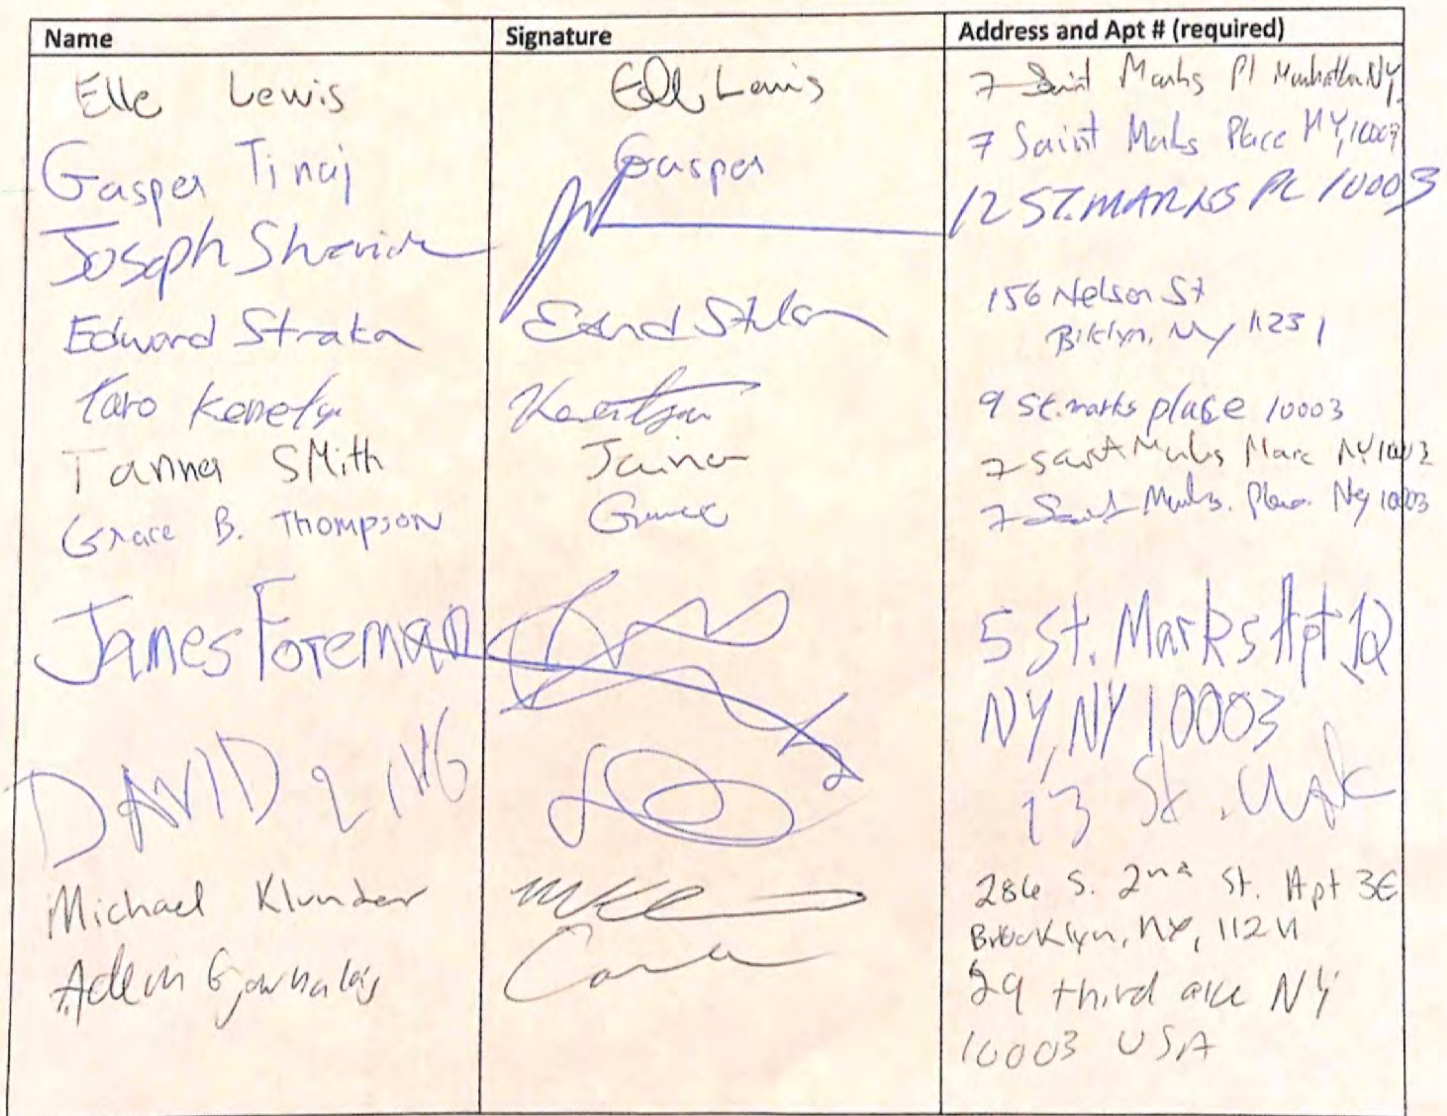 Name Signature Address and Apt # (required)
Elle Lewis Elle Lewis 7 Saint Marks Pl Manhattan NY,
Gasper Tinaj Gasper 7 Saint Marks Place NY, 10003
Joseph 12 ST. MARKS PL 10003
Edward Straka 156 Nelson St
Brklyn, NY 11231
Taro 9 St. marks place 10003
Tanner SMith 7 Saint Marks Place NY 10003
Grace B. Thompson Grace 7 Saint Marks. Place. Ny 10003
James Foreman 5 St. Marks Apt
NY, NY 10003
DAVID 13 St. Mark
Michael Klunder 286 S. 2nd St. Apt 3E
Brooklyn, NY, 11211
Adem 29 third ave NY
10003 USA